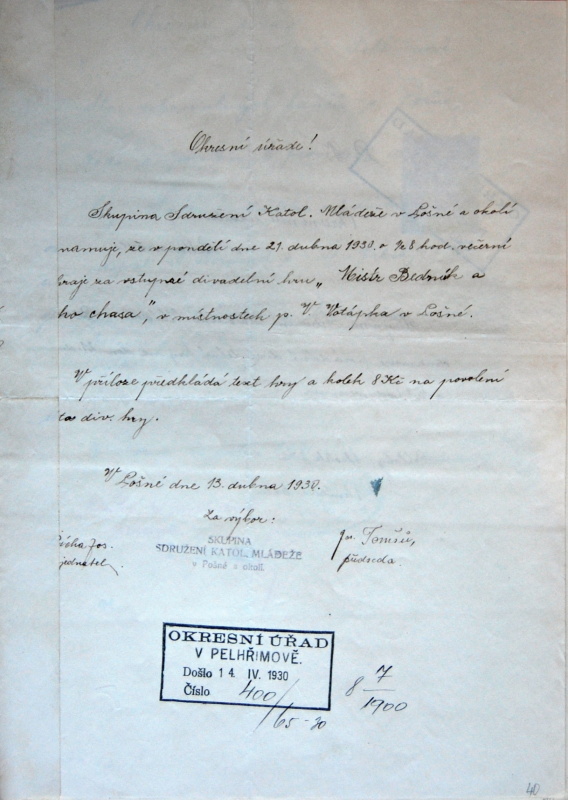 Okresní úřade!
Skupina Sdružení Katol. Mládeže v Pošné a okolí
namuje, že v pondělí dne 21. dubna 1930. o ½8 hod. večerní
hraje za vstupné divadelní hru „Misír Bednář a
ho chasa", v místnostech p. V. Votápka v Pošné.
V příloze předkládá text hry a kolek 8 Kč na povolení
to div. hry.
V Pošné dne 13. dubna 1930.
Za výbor:
Jos.
jednatel
SKUPINA
SDRUŽENÍ KATOL. MLÁDEŽE
v Pošné a okolí.
předseda.
OKRESNÍ ÚŘAD
V PELHŘIMOVĚ.
Došlo 14 IV. 1930
Číslo 400/
65-30
8 7/1900
40